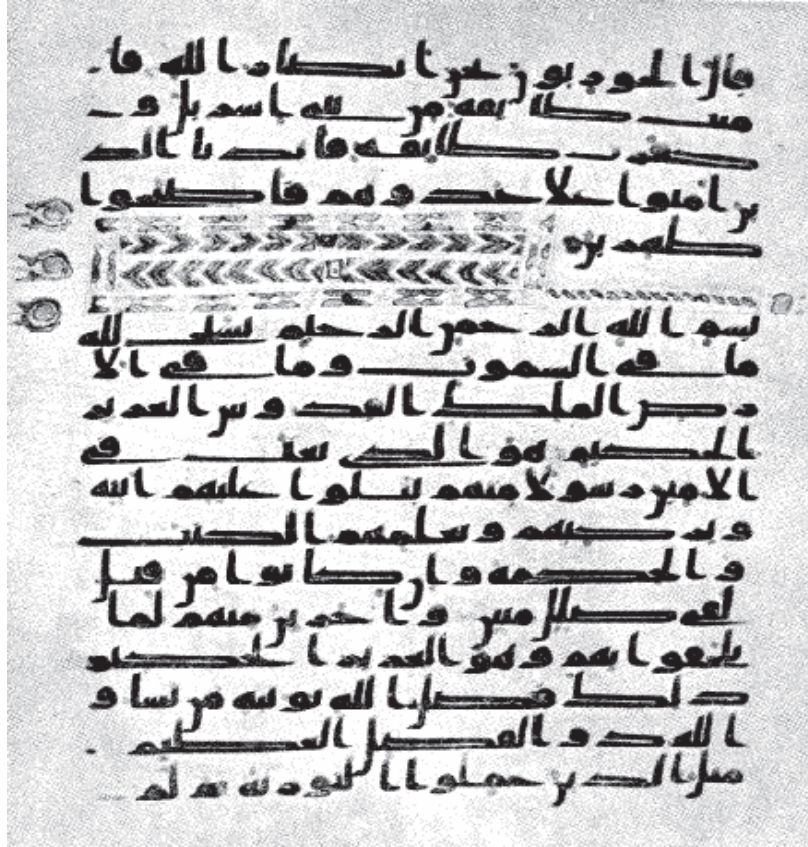 قال الحوريون نحن انصار الله فا
منت طايفة من بني اسريل و
كفرت طايفة فايدنا الذ
ين امنوا علا عدوهم فاصبحوا
ظهرين
بسم الله الرحمن الرحيم يسبح لله
ما في السموت وما في الا
رض الملك القدوس العزيز
الحكيم هو الذي بعث في
الاميين رسولا منهم يتلوا عليهم ايته
ويزكيهم ويعلمهم الكتب
والحكمة وان كانوا من قبل
لفي ضلل مبين واخرين منهم لما
يلحقوا بهم وهو العزيز الحكيم
ذلك فضل الله يوتيه من يشا و
الله ذو الفضل العظيم
مثل الذين حملوا التورية ثم لم